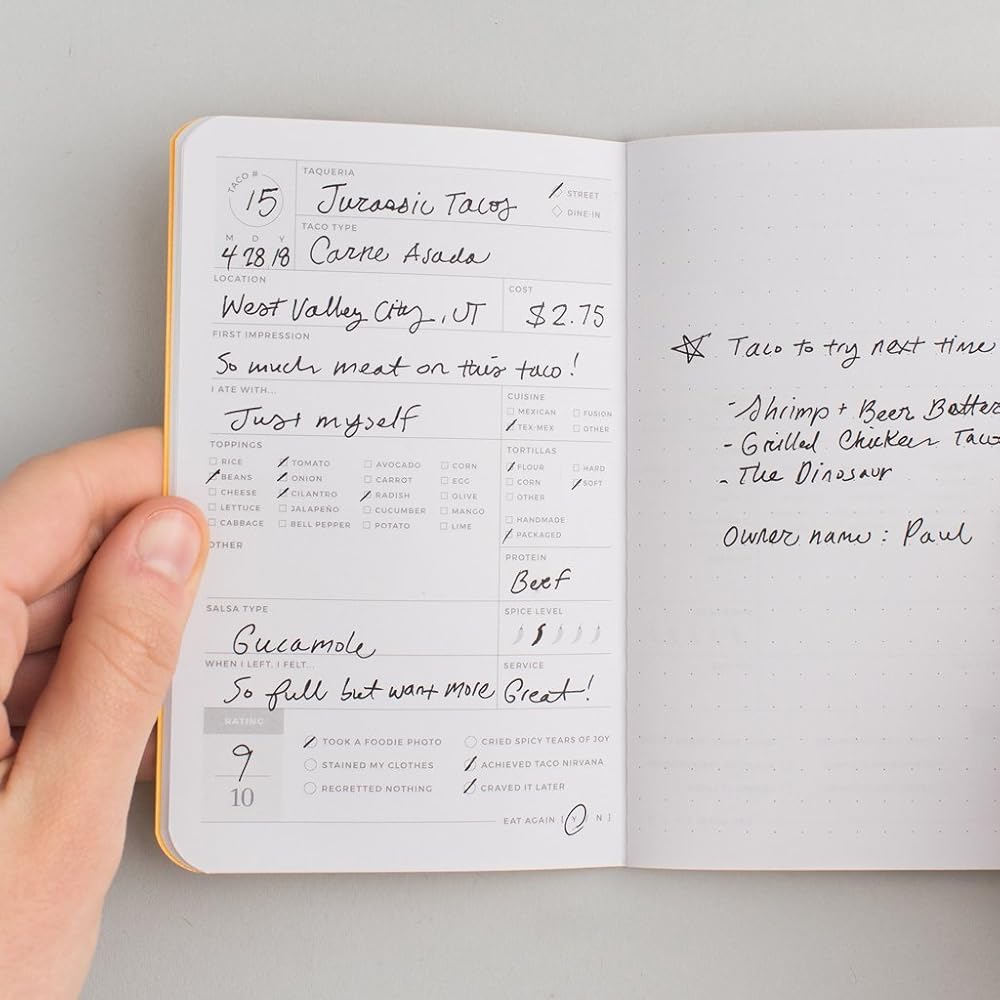 TACO # 15
TAQUERIA
Jurassic Tacos
STREET
DINE-IN
M D Y
4 28 18
TACO TYPE
Carne Asada
LOCATION
West Valley City, UT
COST
$2.75
FIRST IMPRESSION
So much meat on this taco!
I ATE WITH...
Just myself
CUISINE
MEXICAN FUSION
TEX-MEX OTHER
TOPPINGS
RICE TOMATO AVOCADO CORN
BEANS ONION CARROT EGG
CHEESE CILANTRO RADISH OLIVE
LETTUCE JALAPEÑO CUCUMBER MANGO
CABBAGE BELL PEPPER POTATO LIME
OTHER
TORTILLAS
FLOUR HARD
CORN SOFT
OTHER
HANDMADE
PACKAGED
PROTEIN
Beef
SALSA TYPE
Gucamole
SPICE LEVEL
WHEN I LEFT, I FELT...
So full but want more
SERVICE
Great!
RATING
9
10
TOOK A FOODIE PHOTO CRIED SPICY TEARS OF JOY
STAINED MY CLOTHES ACHIEVED TACO NIRVANA
REGRETTED NOTHING CRAVED IT LATER
EAT AGAIN [ Y / N ]
Taco to try next time
- Shrimp + Beer Batter
- Grilled Chicken Taco
- The Dinosaur
Owner name: Paul